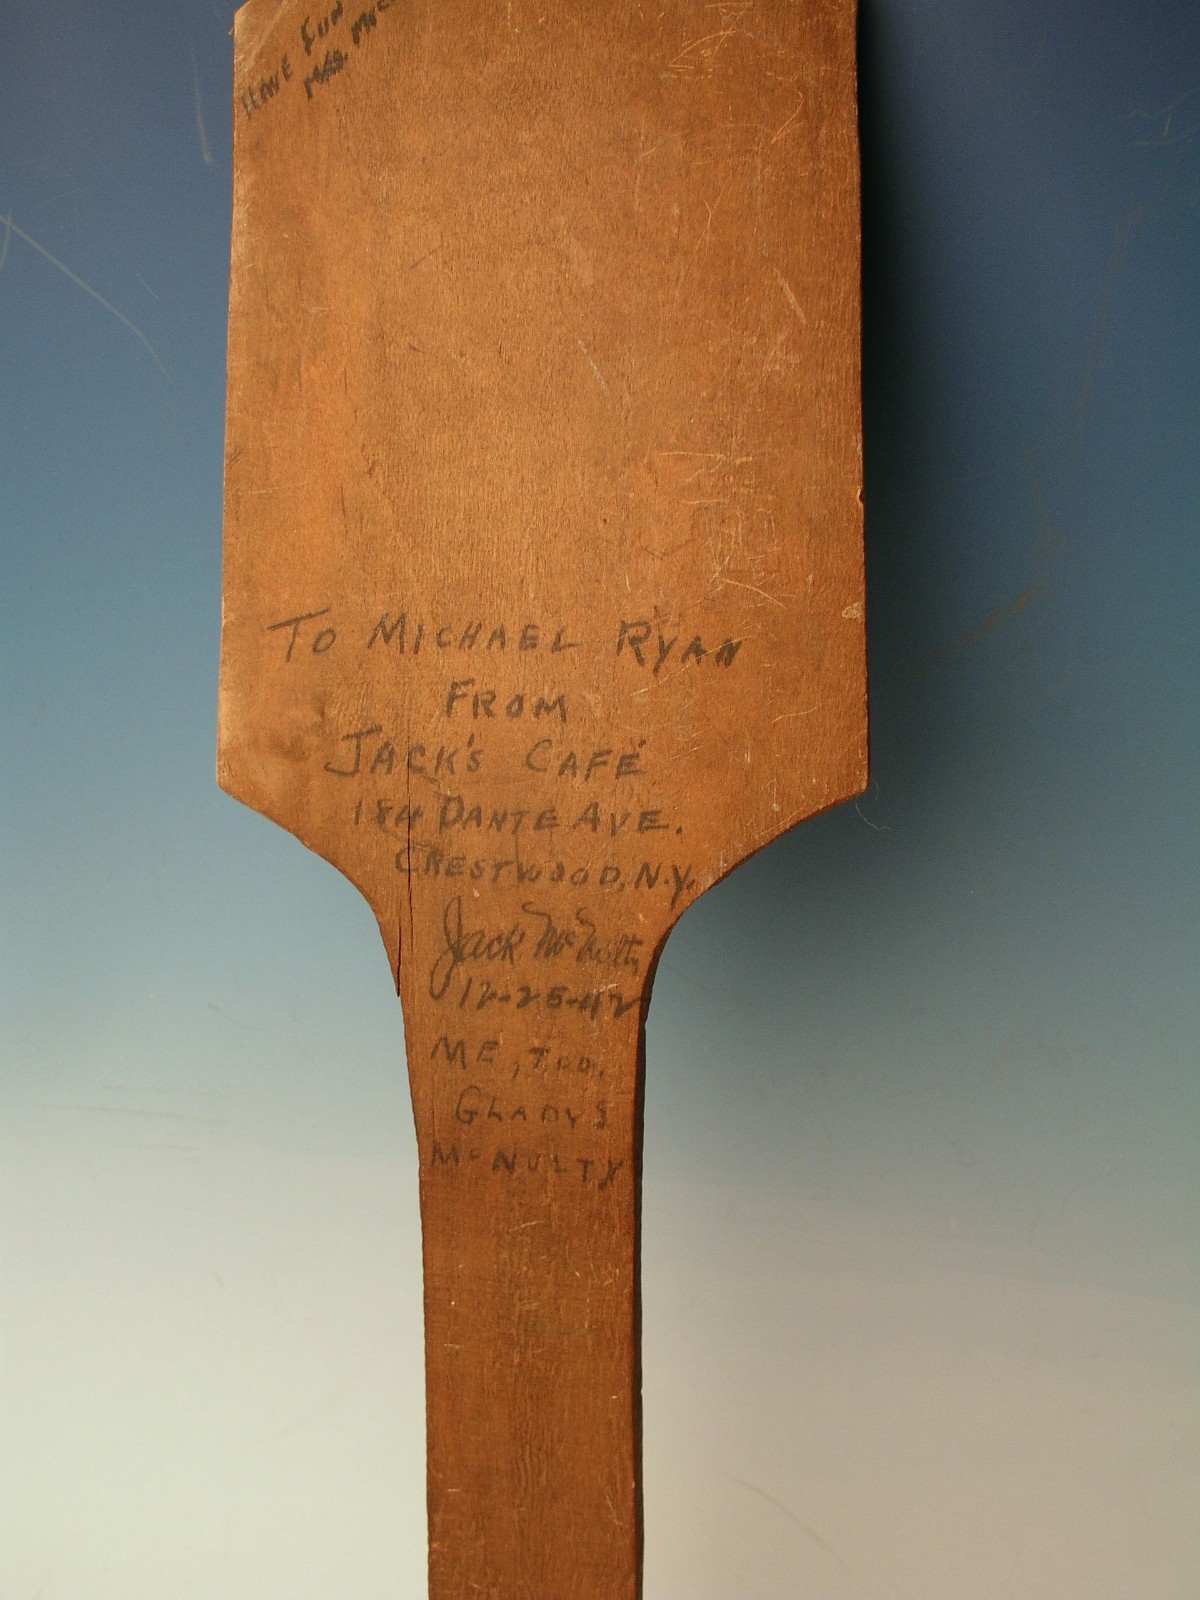 HAVE FUN
MRS.
TO MICHAEL RYAN
FROM
JACK'S CAFÉ
184 DANTE AVE.
CRESTWOOD, N.Y.
Jack McNulty
12-25-42
ME, TOO.
GLADYS
McNULTY